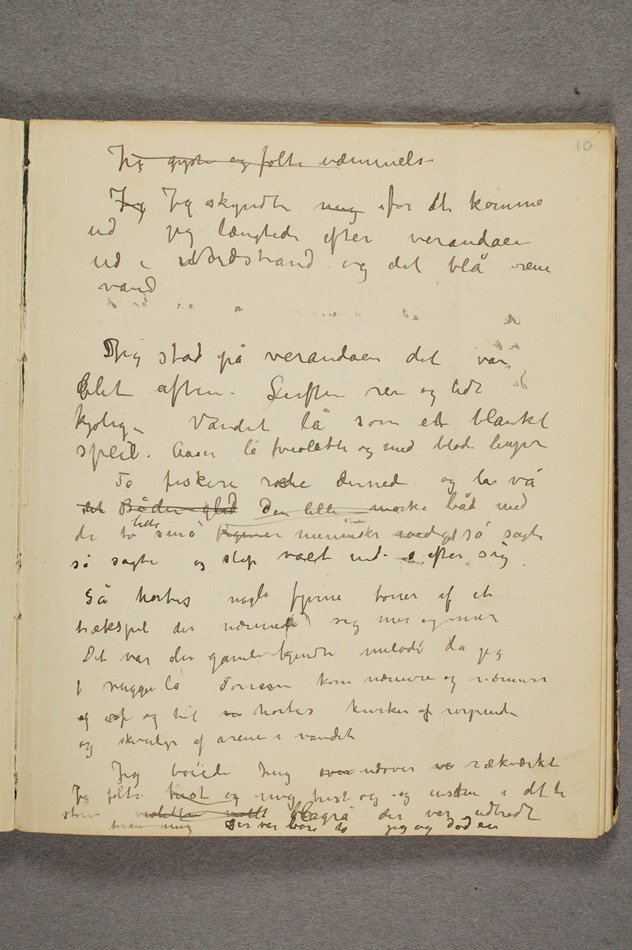 10
Jeg gyste og følte væmmels
Jeg Jeg skyndte mig for at komme
ud jeg længtede efter verandaen
ud i Nordstrand og det blå rene
vand
Jeg stod på verandaen det var
blet aften. Luften ren og lidt
kjølig – Vandet lå som et blankt
speil. Aasen lå fiolette og med bløde linjer
To fiskere rode derned og la
det Båden gled Den lille mørke båd med
de to lille små figurer mennisker så sagte
så sagte og slep vadt ud efter sig.
Så hørtes nogle fjerne toner af et
trækspil der nærmed sig mer og mer
Det var den gamle kjendte melodi da jeg
i vugge lå Tonerne kom nærmere og nærmere
og og til hørtes knirken af
og skvulp af årene i vandet
Jeg bøiede mig over udover rækværket
Jeg følte trist og mig trist og og i dette
store violette blågrå der var udbredt
mig Der var bare to jeg og døden